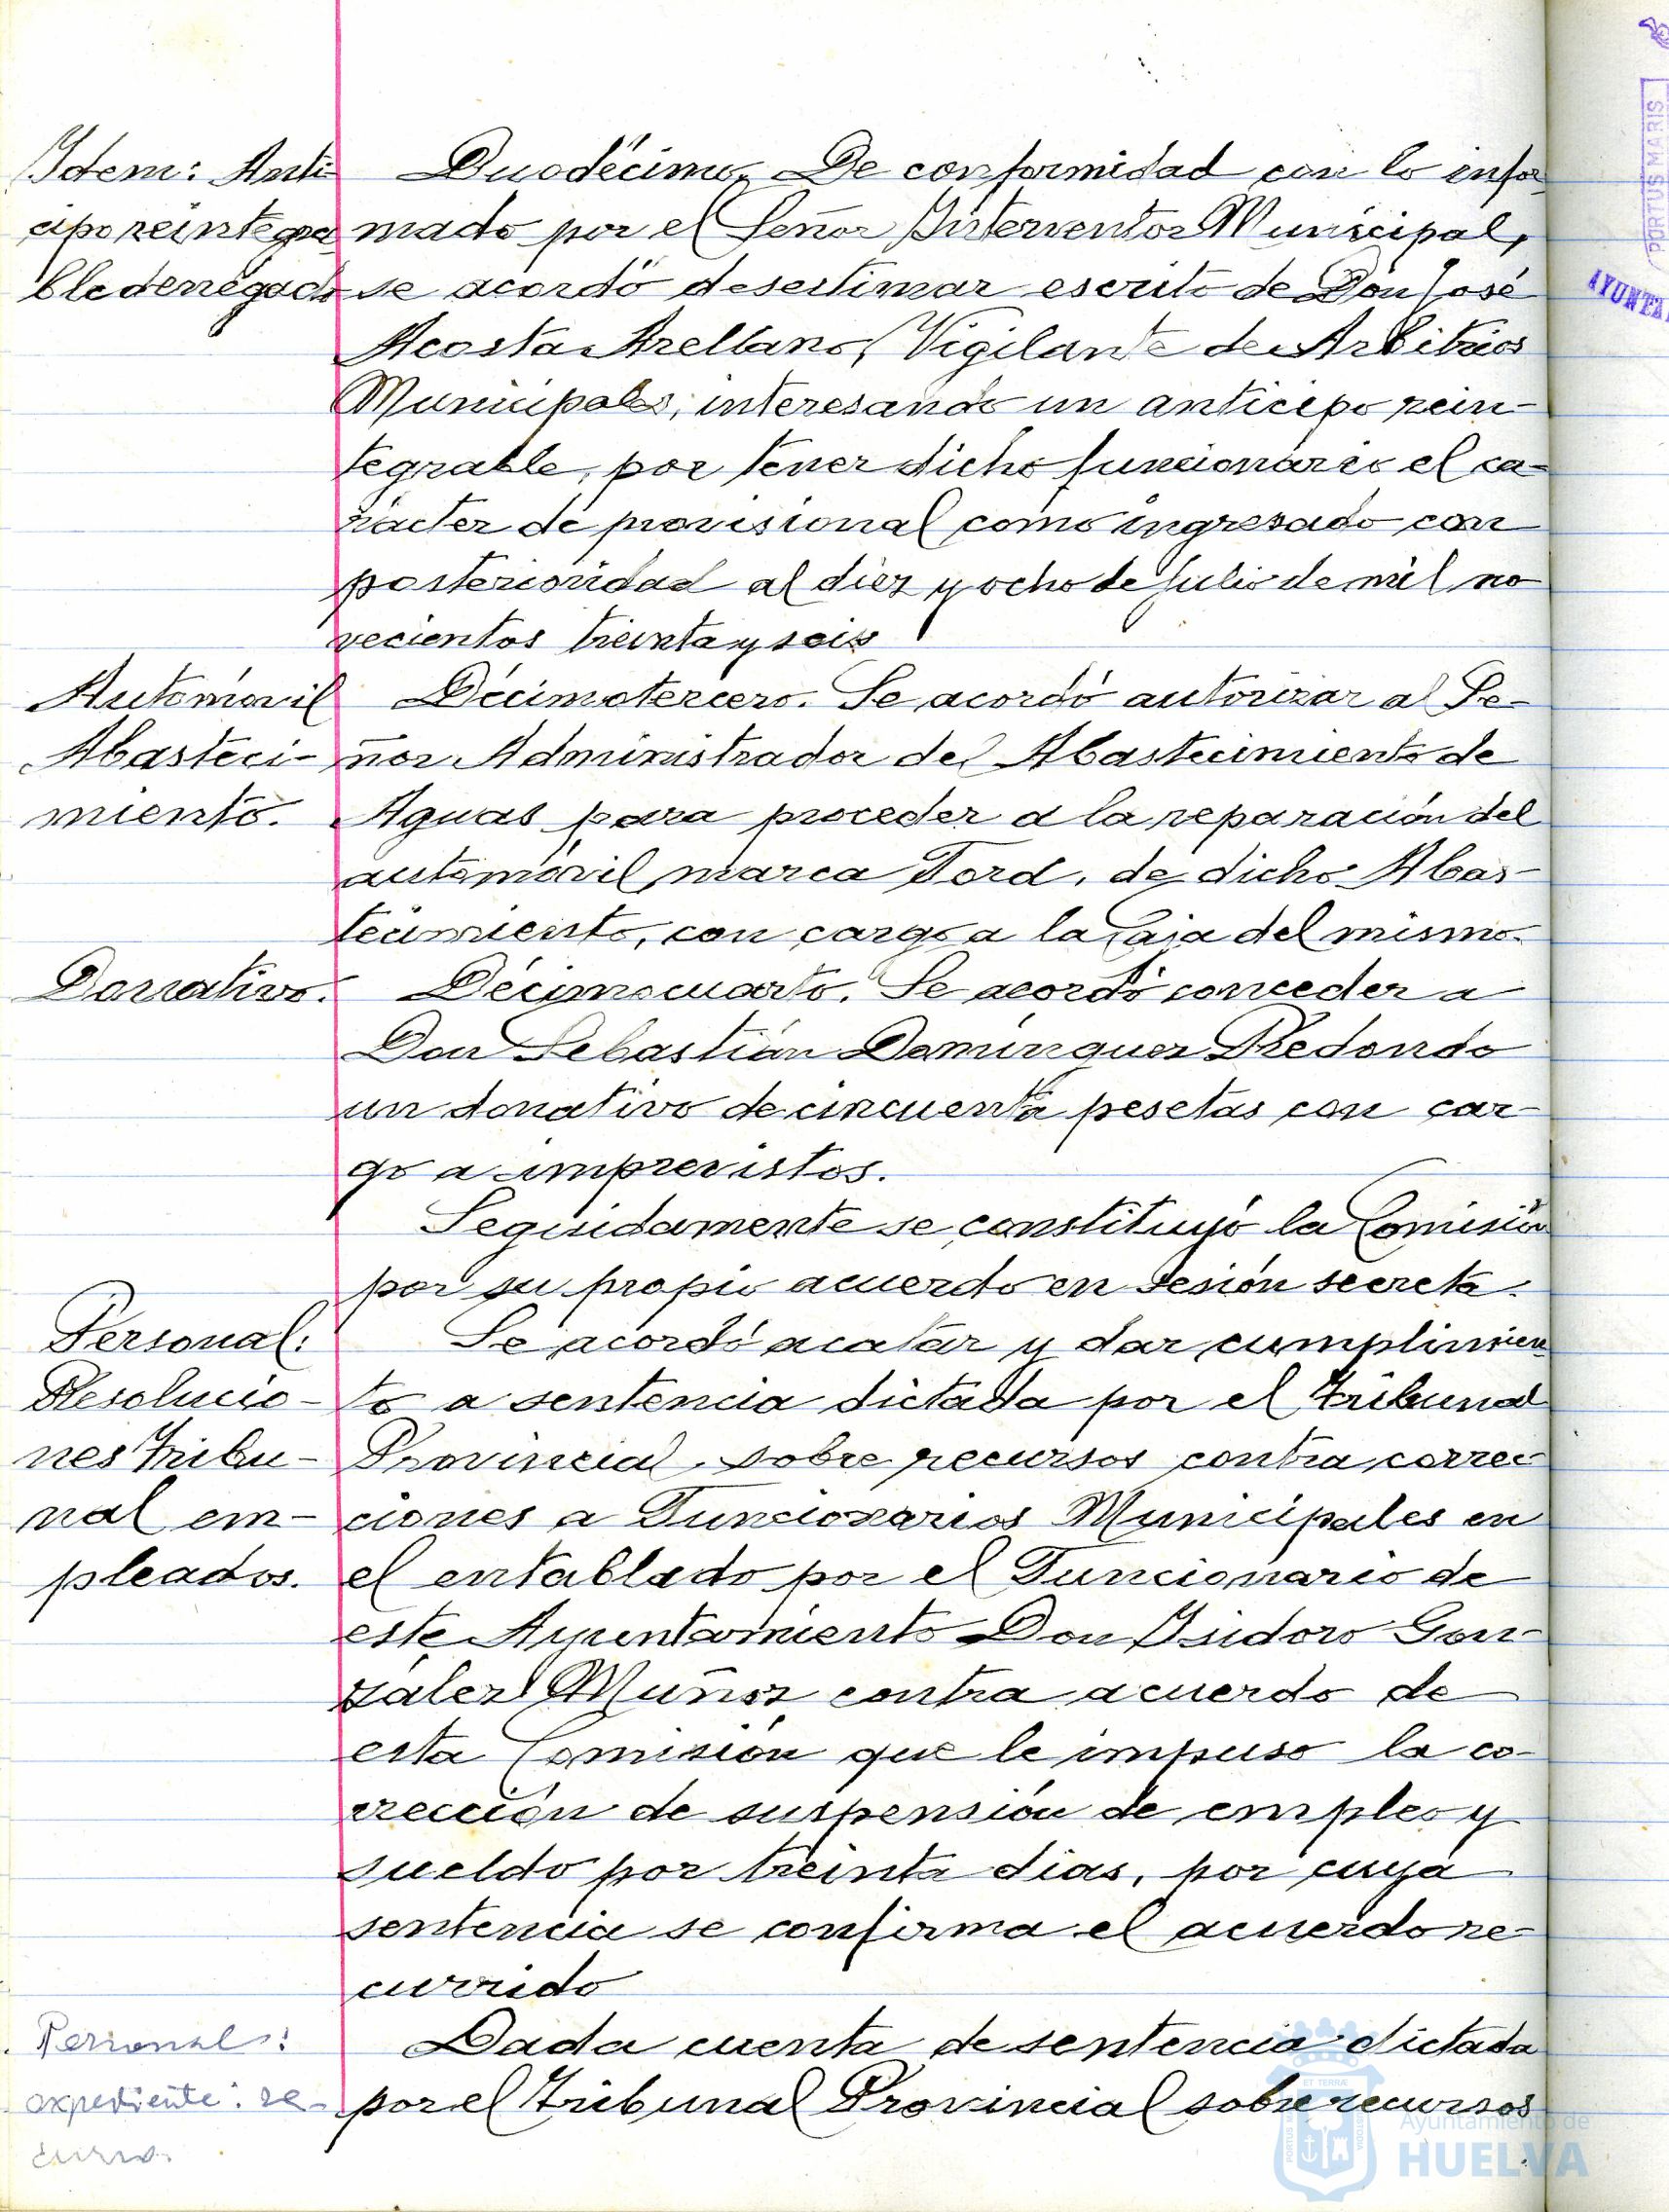 Idem: Anti
cipo reintegra
ble denegado
Duodécimo. De conformidad con lo infor
mado por el Señor Interventor Municipal,
se acordó desestimar escrito de Don José
Acosta Arellano, Vigilante de Arbitrios
Municipales, interesando un anticipo rein-
tegrable, por tener dicho funcionario el ca-
racter de provisional como ingresado con
posterioridad al diez y ocho de Julio de mil no
vecientos treinta y seis
Automóvil
Abasteci-
miento.
Décimotercero. Se acordó autorizar al Se-
ñor Administrador del Abastecimiento de
Aguas para proceder a la reparación del
automóvil marca Ford, de dicho Abas-
tecimiento, con cargo a la Caja del mismo.
Donativo.
Décimocuarto. Se acordó conceder a
Don Sebastián Domínguez Redondo
un donativo de cincuenta pesetas con car-
go a imprevistos.
Seguidamente se constituyó la Comisión
por su propio acuerdo en sesión secreta.
Personal:
Resolucio-
nes Tribu-
nal em-
pleados.
Se acordó acatar y dar cumplimien
to a sentencia dictada por el Tribunal
Provincial, sobre recursos contra correc-
ciones a Funcionarios Municipales en
el entablado por el Funcionario de
este Ayuntamiento Don Isidoro Gon-
zalez Muñoz contra acuerdo de
esta Comisión que le impuso la co-
rrección de suspensión de empleo y
sueldo por treinta días, por cuya
sentencia se confirma el acuerdo re-
currido
Personal:
expediente: re-
curso.
Dada cuenta de sentencia dictada
por el Tribunal Provincial sobre recursos
PORTUS MARIS
AYUNTA
Ayuntamiento de
HUELVA